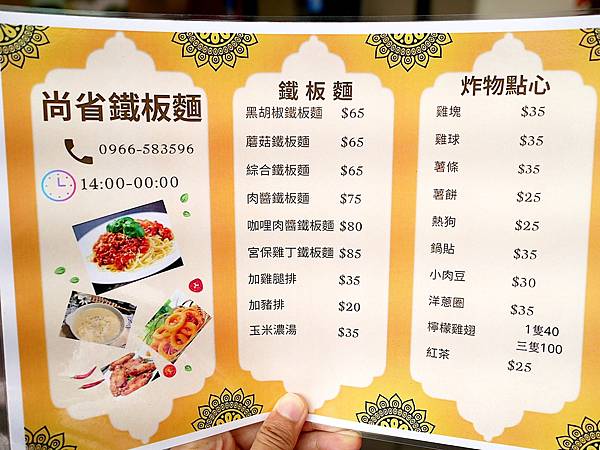 尚省鐵板麵
0966-583596
14:00-00:00
鐵板麵
黑胡椒鐵板麵 $65
蘑菇鐵板麵 $65
綜合鐵板麵 $65
肉醬鐵板麵 $75
咖哩肉醬鐵板麵 $80
宮保雞丁鐵板麵 $85
加雞腿排 $35
加豬排 $20
玉米濃湯 $35
炸物點心
雞塊 $35
雞球 $35
薯條 $35
薯餅 $25
熱狗 $25
鍋貼 $35
小肉豆 $30
洋蔥圈 $35
檸檬雞翅 1隻40
三隻100
紅茶 $25